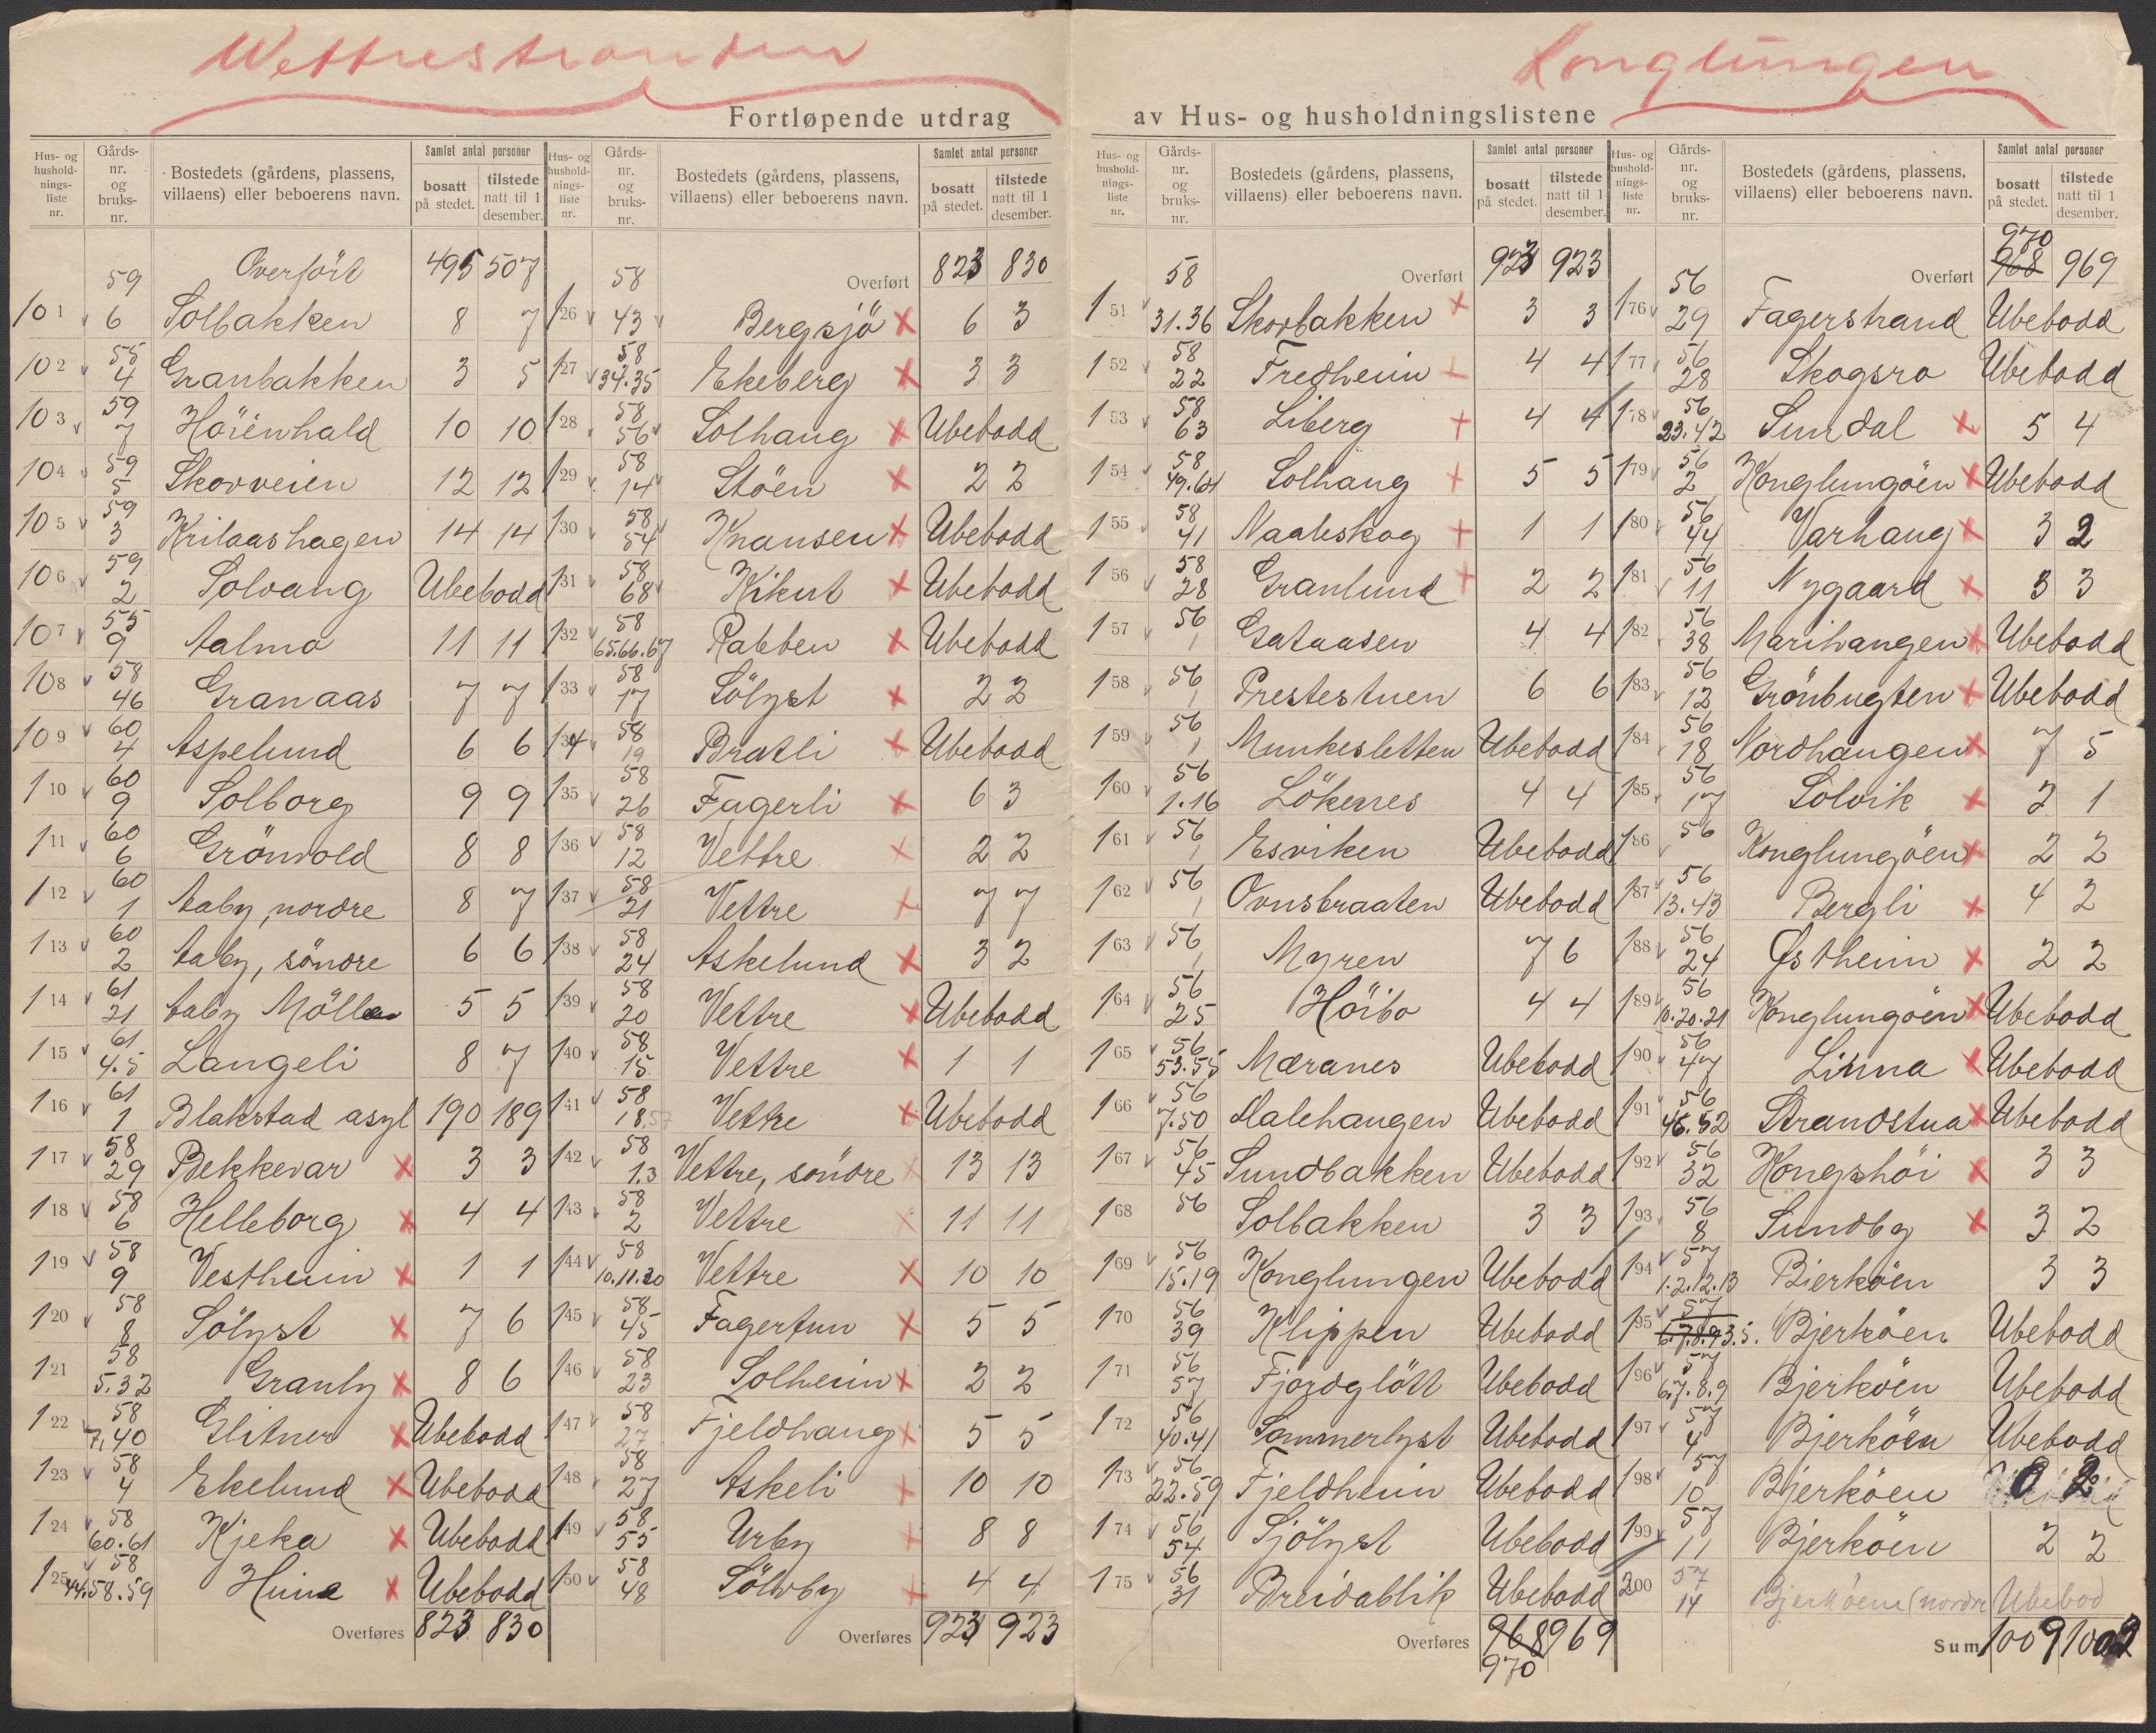 Wettrestranden
Konglungen
Fortløpende utdrag av Hus- og husholdningslistene
Hus- og hushold-nings-liste nr. Gårds-nr. og bruks-nr. Bostedets (gårdens, plassens, villaens) eller beboerens navn. Samlet antal personer bosatt på stedet. tilstede natt til 1 desember.
Overført 495 507
101 59 6 Solbakken 8 7
102 55 4 Granbakken 3 5
103 59 7 Höienhald 10 10
104 59 5 Skovveien 12 12
105 59 3 Krilaashagen 14 14
106 59 2 Solvang Ubebodd
107 55 9 Aalmo 11 11
108 58 46 Granaas 7 7
109 60 4 Aspelund 6 6
110 60 9 Solborg 9 9
111 60 6 Grönvold 8 8
112 60 1 Aaby, nordre 8 7
113 60 2 Aaby, söndre 6 6
114 61 21 Aaby Möllen 5 5
115 61 4.5 Langeli 8 7
116 61 1 Blakstad asyl 190 189
117 58 29 Bekkevar x 3 3
118 58 6 Helleborg x 4 4
119 58 9 Vestheim x 1 1
120 58 8 Sölyst x 7 6
121 58 5.32 Granby x 8 6
122 58 7,40 Glitner x Ubebodd
123 58 4 Ekelund x Ubebodd
124 58 60.61 Kjeka x Ubebodd
125 58 44.58.59 x Ubebodd
Overføres 823 830
Hus- og hushold-nings-liste nr. Gårds-nr. og bruks-nr. Bostedets (gårdens, plassens, villaens) eller beboerens navn. Samlet antal personer bosatt på stedet. tilstede natt til 1 desember.
Overført 823 830
126 58 43 Bergsjö x 6 3
127 58 34.35 Ekeberg x 3 3
128 58 56 Solhaug x Ubebodd
129 58 14 Stöen x 2 2
130 58 54 Knausen x Ubebodd
131 58 68 Kikut x Ubebodd
132 58 65.66.67 Rabben x Ubebodd
133 58 17 Sölyst x 2 2
134 58 19 Bratli x Ubebodd
135 58 26 Fagerli x 6 3
136 58 12 Vettre x 2 2
137 58 21 Vettre x 7 7
138 58 24 Askelund x 3 2
139 58 20 Vettre x Ubebodd
140 58 15 Vettre x 1 1
141 58 18.57 Vettre x Ubebodd
142 58 1.3 Vettre, söndre x 13 13
143 58 2 Vettre x 11 11
144 58 10.11.30 Vettre x 10 10
145 58 45 Fagertun x 5 5
146 58 23 Solheim x 2 2
147 58 27 Fjeldhaug x 5 5
148 58 27 Askeli x 10 10
149 58 55 Urby x 8 8
150 58 48 Sölvby x 4 4
Overføres 923 923
Hus- og hushold-nings-liste nr. Gårds-nr. og bruks-nr. Bostedets (gårdens, plassens, villaens) eller beboerens navn. Samlet antal personer bosatt på stedet. tilstede natt til 1 desember.
Overført 923 923
151 58 31.36 Skovbakken x 3 3
152 58 22 Fredheim x 4 4
153 58 63 Liberg x 4 4
154 58 49.64 Solhaug x 5 5
155 58 41 Naaleskog x 1 1
156 58 28 Granlund x 2 2
157 56 1 Gataasen 4 4
158 56 1 Prestestuen 6 6
159 56 1 Munkesletten Ubebodd
160 56 1.16 Lökenes 4 4
161 56 1 Esviken Ubebodd
162 56 1 Ovnsbraaten Ubebodd
163 56 1 Myren 7 6
164 56 25 Höibo 4 4
165 56 53.55 Mæranes Ubebodd
166 56 7.50 Halehaugen Ubebodd
167 56 45 Sundbakken Ubebodd
168 56 Solbakken 3 3
169 56 15.19 Konglungen Ubebodd
170 56 39 Klippen Ubebodd
171 56 57 Fjordglött Ubebodd
172 56 40.41 Sommerlyst Ubebodd
173 56 22.59 Fjeldheim Ubebodd
174 56 54 Sjölyst Ubebodd
175 56 31 Breidablik Ubebodd
Overføres 968 969
970
Hus- og hushold-nings-liste nr. Gårds-nr. og bruks-nr. Bostedets (gårdens, plassens, villaens) eller beboerens navn. Samlet antal personer bosatt på stedet. tilstede natt til 1 desember.
970
Overført 968 969
176 56 29 Fagerstrand Ubebodd
177 56 28 Skogsro Ubebodd
178 56 23.42 Sundal x 5 4
179 56 2 Konglungöen x Ubebodd
180 56 44 Varhaug x 3 2
181 56 11 Nygaard x 3 3
182 56 38 Marihaugen x Ubebodd
183 56 12 Grönbugten x Ubebodd
184 56 18 Nordhaugen x 7 5
185 56 17 Solvik x 2 1
186 56 Konglungöen x 2 2
187 56 13.43 Bergli x 4 2
188 56 24 Østheim x 2 2
189 56 10.20.21 Konglungöen x Ubebodd
190 56 47 Linna x Ubebodd
191 56 46.52 Strandstua x Ubebodd
192 56 32 Kongshöi x 3 3
193 56 8 Sundby x 3 2
194 57 1.2.12.13 Bjerköen 3 3
195 57 6.7.8.9 3.5. Bjerköen Ubebodd
196 57 6.7.8.9 Bjerköen Ubebodd
197 57 4 Bjerköen Ubebodd
198 57 10 Bjerköen 0 2
199 57 11 Bjerköen 2 2
200 57 14 Bjerköen (nordre Ubebod
Sum 1009 1002